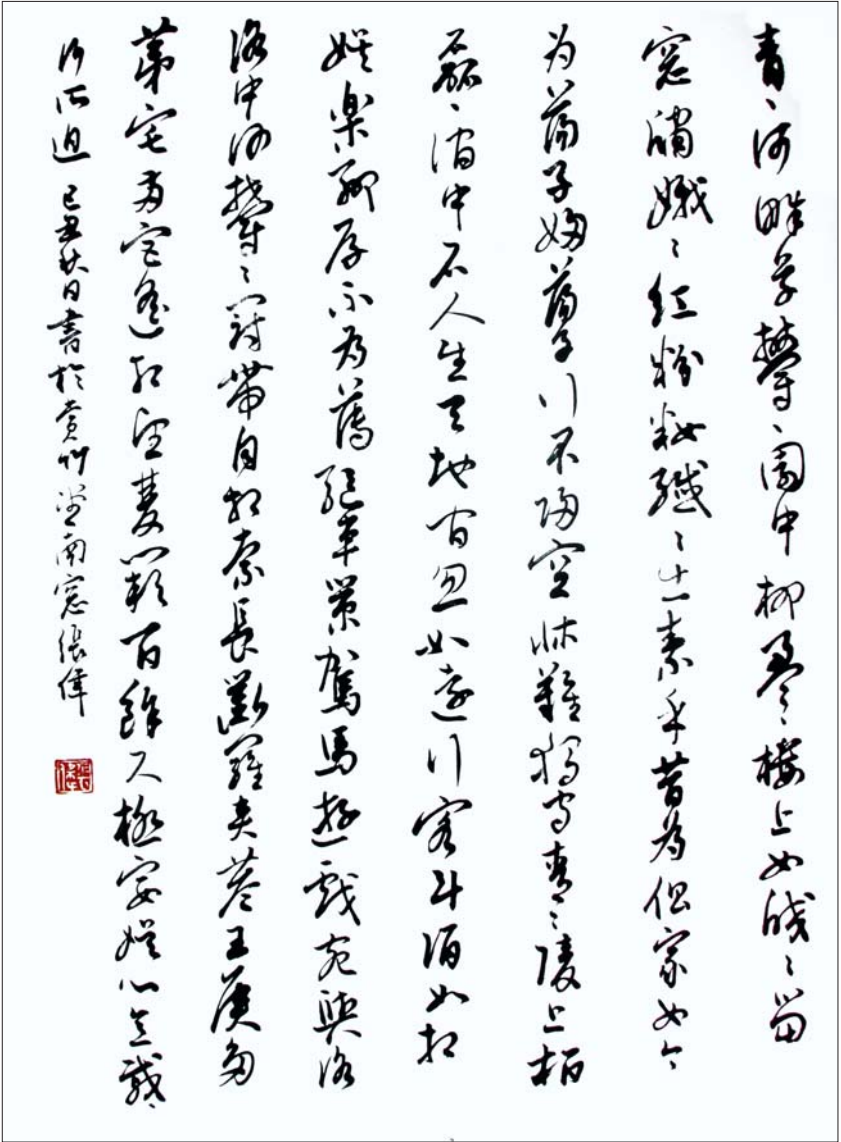 青〻河畔草鬱〻園中柳盈〻樓上女皎〻當
窓牖娥〻紅粉妝纖〻出素手昔为倡家女今
为蕩子婦蕩子行不歸空床難獨守青〻陵上柏
磊〻澗中石人生天地間忽如遠行客斗酒如相
娛樂聊厚不为薄驅車策駑馬遊戲宛與洛
洛中何鬱〻冠帶自相索長衢羅夾巷王侯多
第宅兩宮遙相望雙闕百餘尺極宴娛心意戚〻
何所迫 己丑秋日書於竹堂南窓張偉